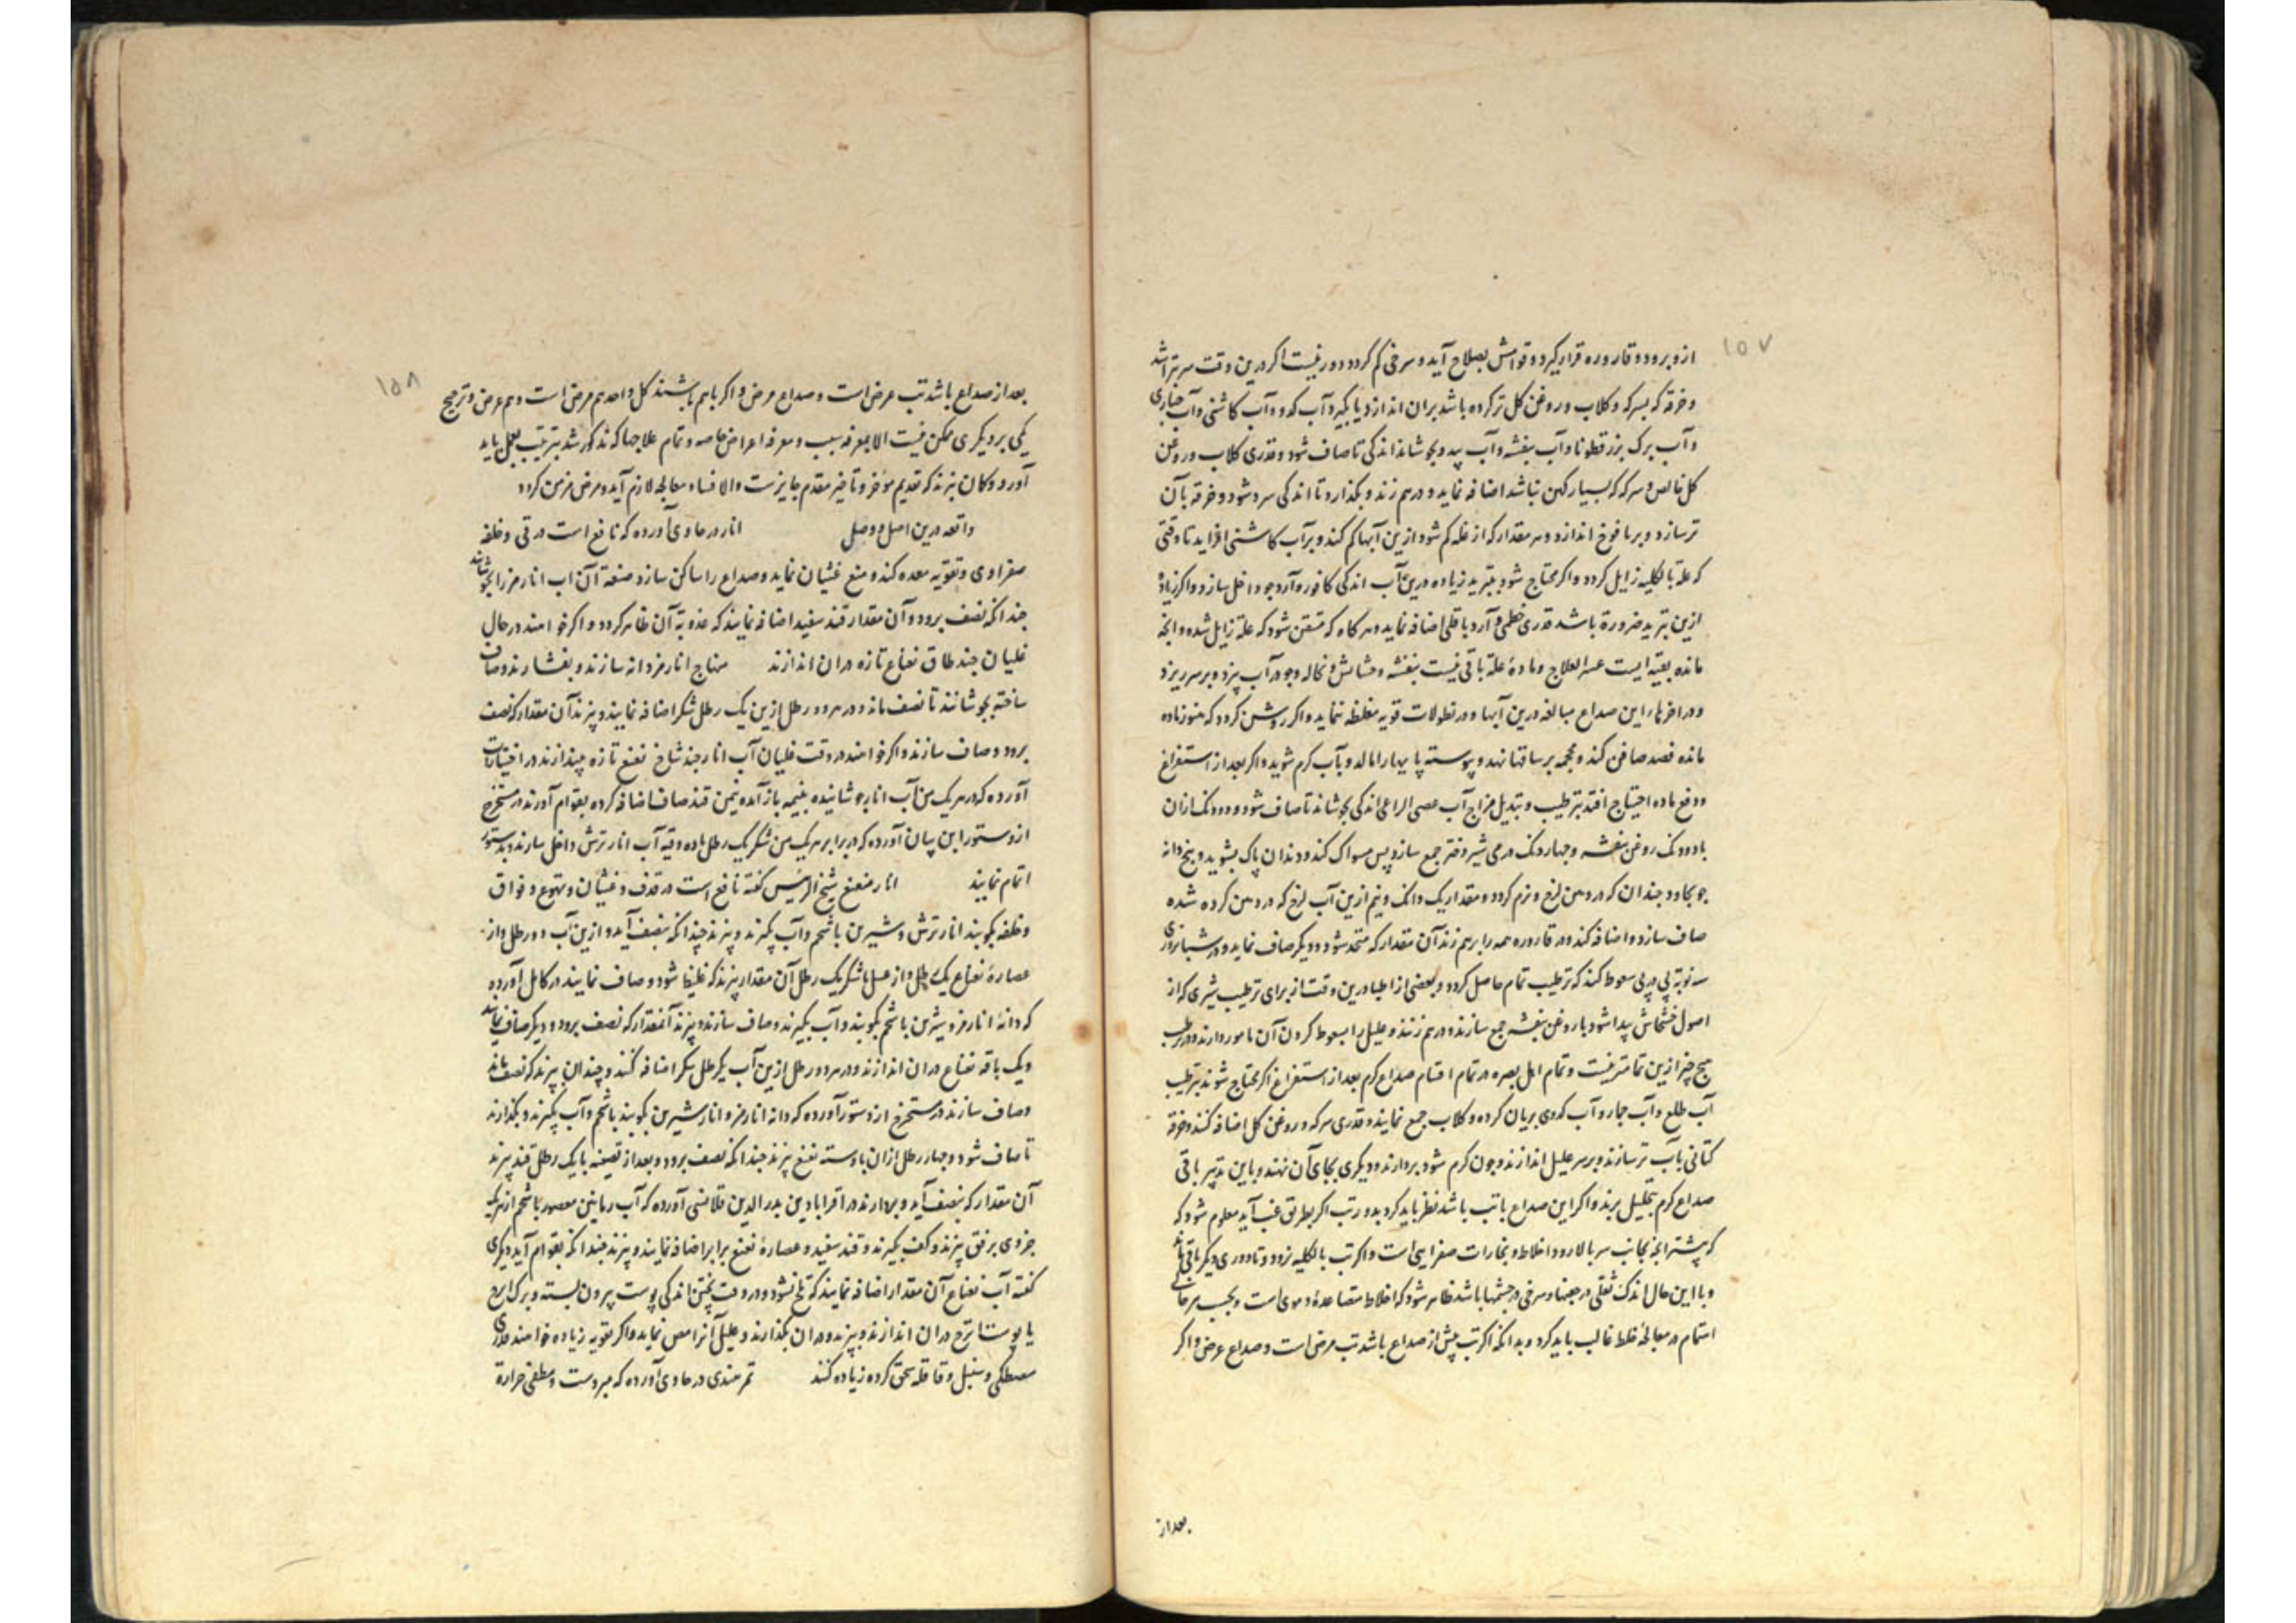 ۱۵۷
ازو برود و قاروره قرار گیرد و قوامش بصلاح آید و سرخی کم گردد دور نیست اگر درین وقت سر بتراشد
و خرقه که بسرکه و گلاب و روغن گل تر کرده باشد بران اندازد یا بگیرد آب کدو و آب کاشنی و آب خیاری
و آب برک بزرقطونا و آب بنفشه و آب بید و بجوشاند اندکی تا صاف شود و قدری گلاب و روغن
گل خالص و سرکه که بسیار کهن نباشد اضافه نماید و درهم زند و بگذارد تا اندکی سرد شود و خرقه بآن
تر سازد و بر یافوخ اندازد و هر مقدار که از علة کم شود ازین آبها کم کند و بر آب کاشنی افزاید تا وقتی
که علة بالکلیه زایل گردد و اگر محتاج شود بتبرید زیاده درین آب اندکی کافور و آرد جو داخل سازد و اگر زیادة
ازین تبرید ضرورة باشد قدری خطمی و آرد باقلی اضافه نماید و هرگاه که متیقن شود که علة زایل شده و آنچه
مانده بقیه ایست عسر العلاج و مادهٔ علة باقی نیست بنفشه و خشخاش و نخاله و جو در آب پزد و بر سر ریزد
و در اخر کار این صداع مبالغه درین آبها و در نطولات قویه مغلظه ننماید و اگر روشن گردد که هنوز ماده
مانده فصد صافن کند و محجمه بر ساقها نهد و پیوسته پایها را مالد و بآب گرم شوید و اگر بعد از استفراغ
و دفع ماده احتیاج افتد بترطیب و تبدیل مزاج آب عصی الراعی اندکی بجوشاند تا صاف شود و دو دنک ازان
با دو دنک روغن بنفشه و چهار دنک درمی شیر دختر جمع سازد پس مسواک کند و دندان پاک بشوید و پنج دانه
جو بخاود چندان که در دهن لزج و نرم گردد و مقدار یک دانک و نیم ازین آب لزج که در دهن کرده شده
صاف سازد و اضافه کند و در قاروره همه را برهم زند آن مقدار که متحد شود و دیگر صاف نماید و در شبانروزی
سه نوبة پی در پی سعوط کند که ترطیب تمام حاصل گردد و بعضی از اطبا درین وقت از برای ترطیب شیری که از
اصول خشخاش پیدا شود با روغن بنفشه جمع سازند و درهم زنند و علیل را بسعوط کردن آن مامور دارند و در ترطیب
هیچ چیز ازین تمامتر نیست و تمام اهل بصره در تمام اقسام صداع گرم بعد از استفراغ اگر محتاج شوند بترطیب
آب طلع و آب جمار و آب کدوی بریان کرده و گلاب جمع نمایند و قدری سرکه و روغن گل اضافه کنند و خرقه
کتانی بآب تر سازند و بر سر علیل اندازند و چون گرم شود بردارند و دیگری بجای آن نهند و باین تدبیر باقی
صداع گرم بتحلیل برند و اگر این صداع با تب باشد نظر باید کرد بدور تب اگر بطریق غب آید معلوم شود که
که پیشتر ابخره بجانب سر بالا رود اخلاط و بخارات صفراویی است و اگر تب بالکلیه نرود و تا دوری دیگر باقی باشد
و با این حال اندک ثقلی در جبهه و سرخی در چشمها باشد ظاهر شود که اخلاط متصاعده دموی است و بحسب هر حالی
اهتمام در معالجهٔ خلط غالب باید کرد و بدانکه اگر تب پیش از صداع باشد تب مرض است و صداع عرض و اگر
بعد از
۱۵۸
بعد از صداع باشد تب عرض است و صداع مرض و اگر باهم باشند کل واحد هم مرض است و هم عرض و ترجیح
یکی بر دیگری ممکن نیست الا بمعرفه سبب و معرفه اعراض خاصه و تمام علاجها که مذکور شد بترتیب بعمل باید
آورد و گمان نبرند که تقدیم موخر و تاخیر مقدم جایز ست والا فساد معالجه لازم آید و مرض مزمن گردد
واقعه درین اصل و وصل انار در حاوی آورده که نافع است در قی و خلفه
صفراوی و تقویه معده کند و منع غثیان نماید و صداع را ساکن سازد صنعة آن اب انار مز را بجوشانند
چندانکه نصف برود و آن مقدار قند سفید اضافه نمایند که عذوبة آن ظاهر گردد و اگر خواهند در حال
غلیان چند طاق نعناع تازه دران اندازند منهاج انار مز دانه سازند و بفشارند و صاف
ساخته بجوشانند تا نصف ماند و در هر دو رطل ازین یک رطل شکر اضافه نمایند و پزند آن مقدار که نصف
برود و صاف سازند و اگر خواهند در وقت غلیان آب انار چند شاخ نعنع تازه بیندازند در اختیارات
آورده که در هر یک من آب انار جوشانیده بنیمه باز آمده نیمن قند صاف اضافه کرده بقوام آورند در مستخرج
از دستور ابن بیان آورده که در برابر هر یک من شکر یک رطل و ده وقیه آب انار ترش داخل سازند و بدستور
اتمام نمایند انار منعنع شیخ الرئیس گفته نافع است در قذف و غثیان و تهوع و فواق
و خلفه بکوبند انار ترش و شیرین با شحم و آب گیرند و پزند چندانکه بنصف آید و ازین آب دو رطل و از
عصارهٔ نعناع یک رطل و از عسل یا شکر یک رطل آن مقدار پزند که غلیظ شود و صاف نمایند در کامل آورده
که دانهٔ انار مز و شیرین با شحم بکوبند و آب بگیرند و صاف سازند و پزند آنمقدار که نصف برود و دیگر صاف نمایند
و یک باقه نعناع دران اندازند و در هر دو رطل ازین آب یکرطل شکر اضافه کنند و چندان پزند که نصف ماند
و صاف سازند در مستخرج از دستور آورده که دانه انار مز و انار شیرین بکوبند با شحم و آب بگیرند و بگذارند
تا صاف شود و چهار رطل ازان با دسته نعنع پزند چندانکه نصف برود و بعد از تصفیه با یک رطل قند پزند
آن مقدار که بنصف آید و بردارند در اقرابادین بدر الدین قلانسی آورده که آب رمانین معصور با شحم از هر یک
جزوی برفق پزند و کف بگیرند و قند سفید و عصارهٔ نعنع برابر اضافه نمایند و پزند چندانکه بقوام آید دیگری
گفته آب نعناع آن مقدار اضافه نمایند که تلخ نشود و در وقت پختن اندکی پوست بیرون پسته و برک اترج
یا پوست اترج دران اندازند و پزند و دران بگذارند و علیل آنرا مص نماید و اگر تقویه زیاده خواهند قدری
مصطکی و سنبل و قاقله سحق کرده زیاده کنند تمر هندی در حاوی آورده که مبردست و مطفی حرارة